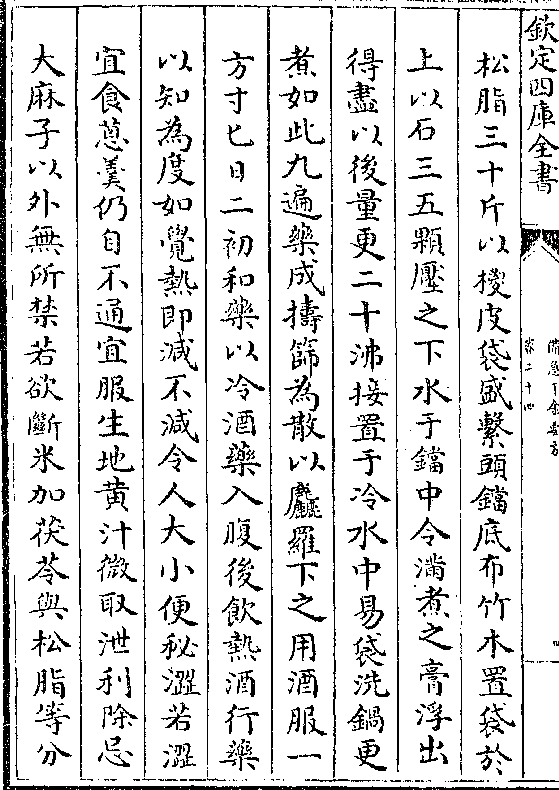 欽定四庫全書
備急千金要方
卷二十四
松脂三十斤以㯶皮袋盛繫頭鐺底布竹木置袋於
上以石三五顆壓之下水于鐺中令滿煮之膏浮出
得盡以後量更二十沸接置于冷水中易袋洗鍋更
煮如此九遍藥成擣篩為散以麤羅下之用酒服一
方寸匕日二初和藥以冷酒藥入腹後飲熱酒行藥
以知為度如覺熱即減不減令人大小便秘澀若澀
宜食蔥羹仍自不通宜服生地黄汁微取泄利除忌
大麻子以外無所禁若欲斷米加茯苓與松脂等分